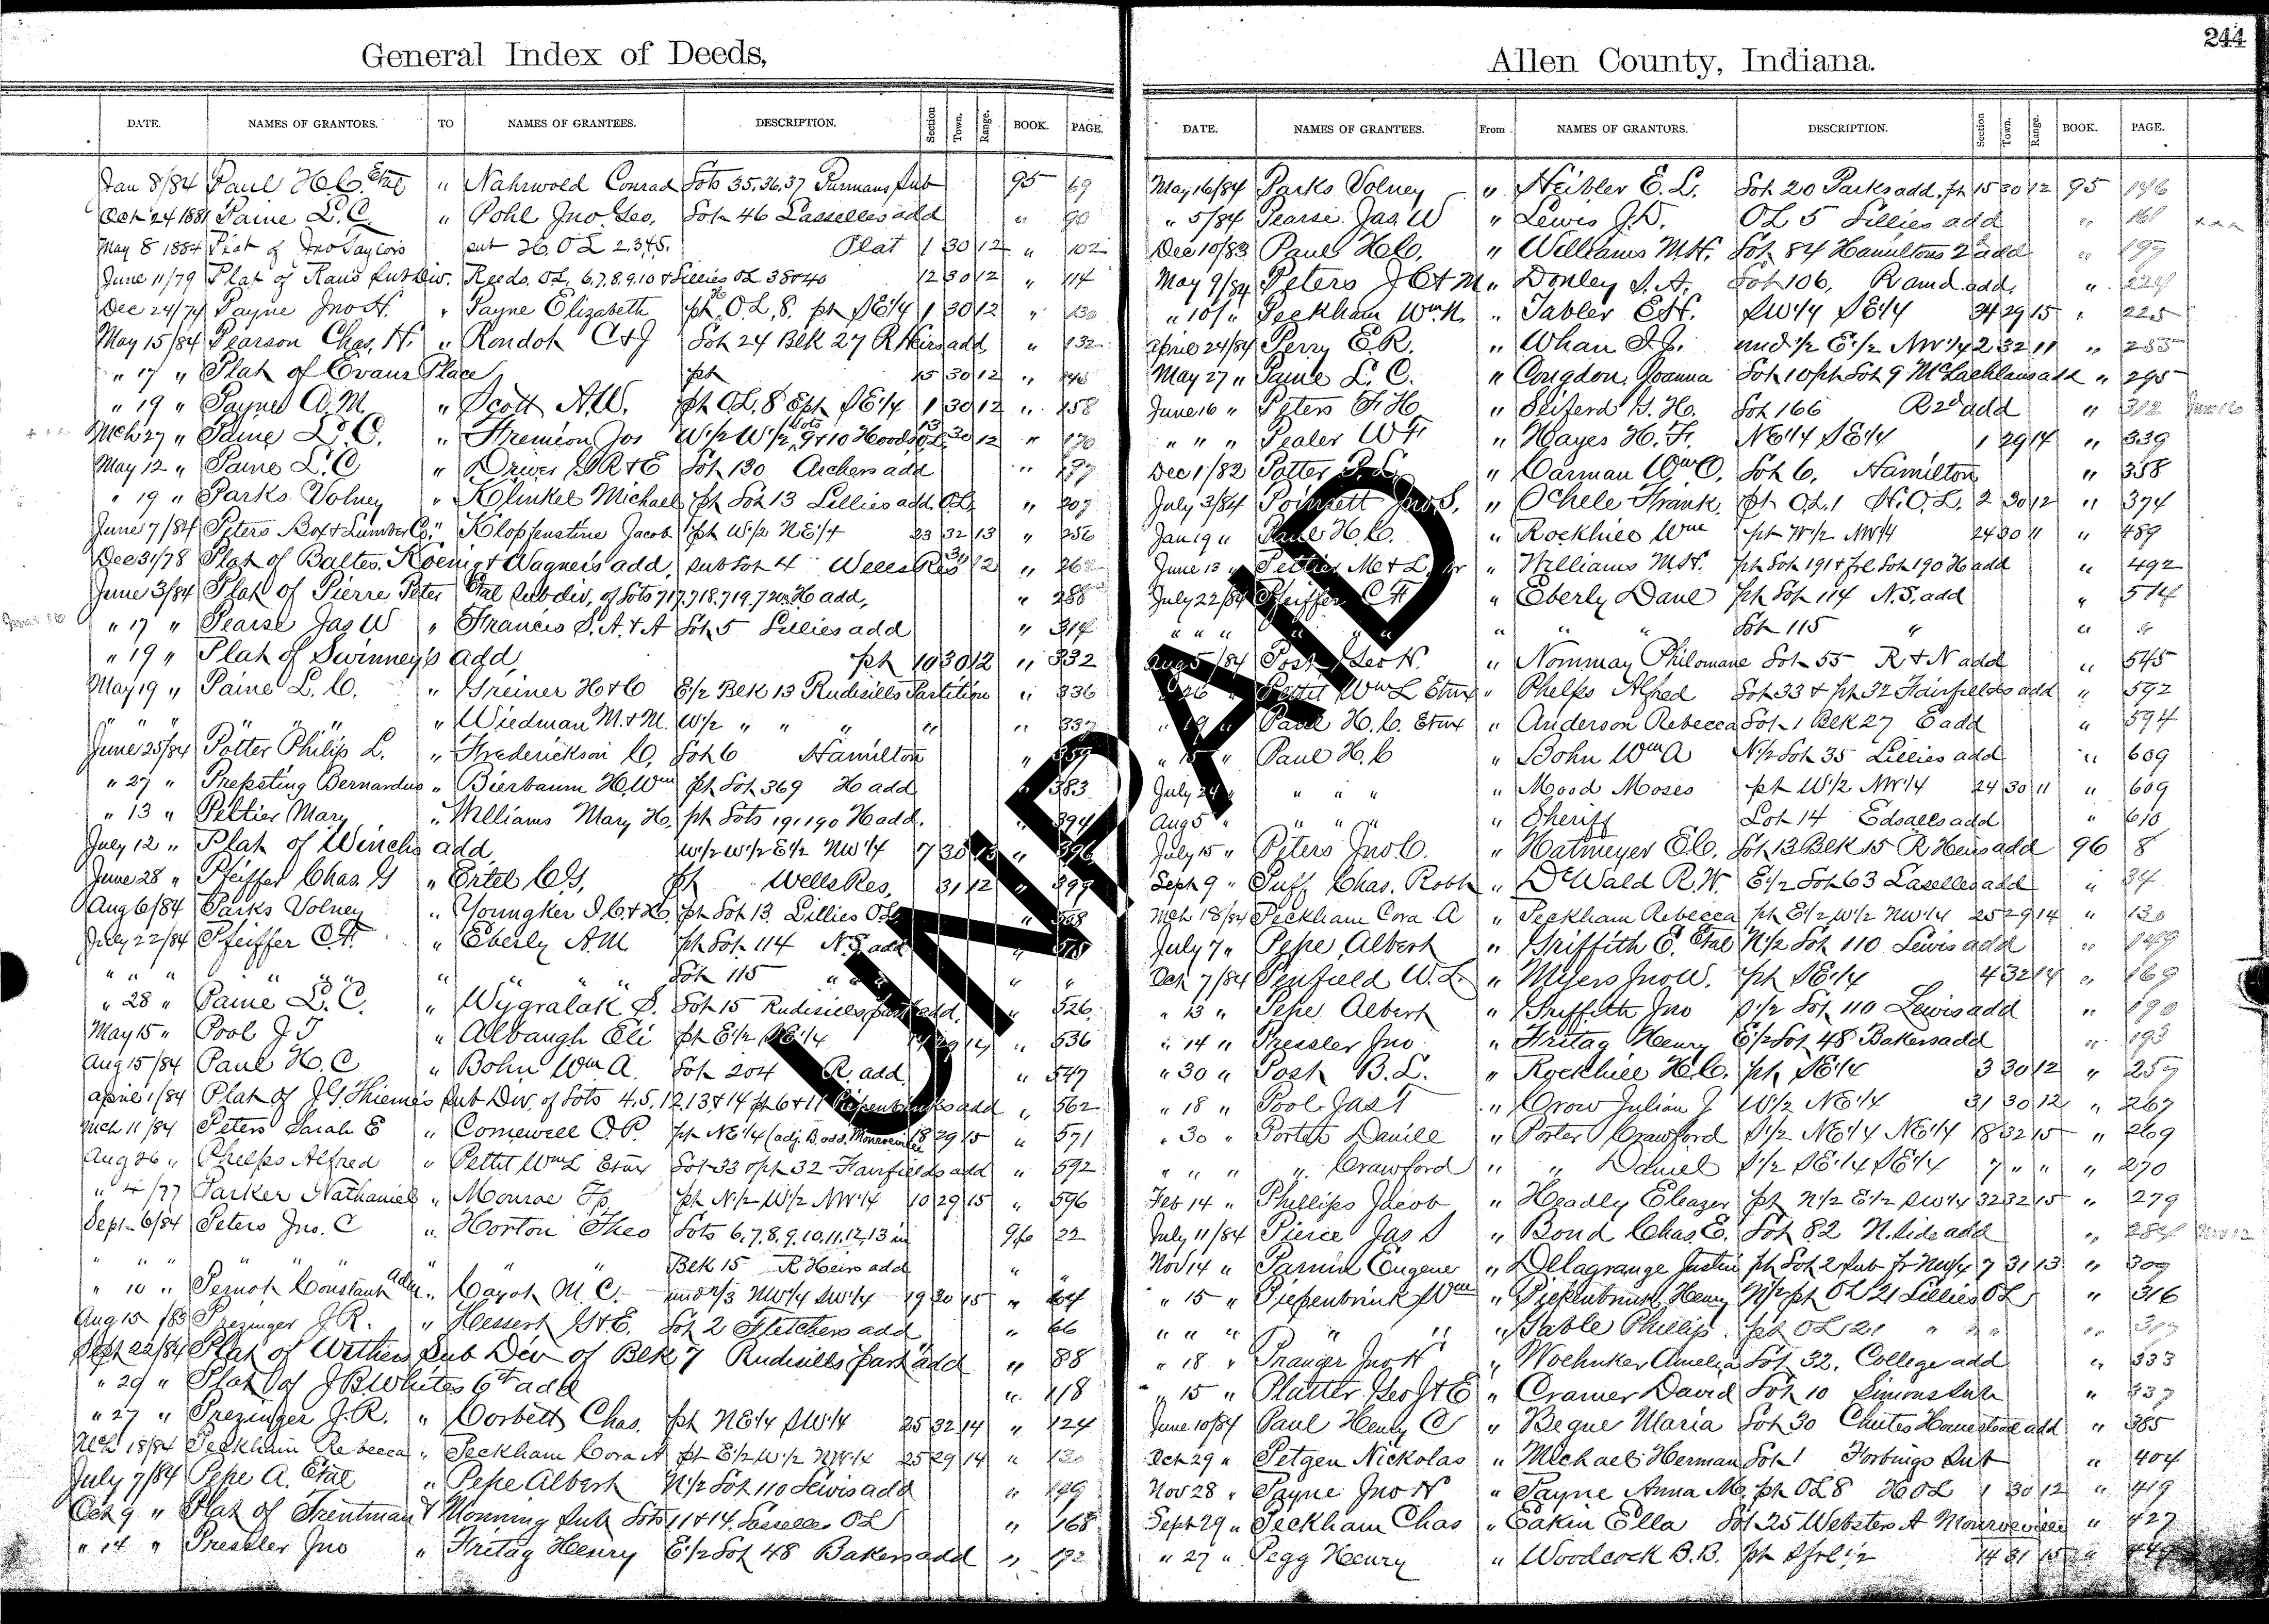 244
General Index of Deeds,
DATE. NAMES OF GRANTORS. TO NAMES OF GRANTEES. DESCRIPTION. Section Town. Range. BOOK. PAGE.
Jan 8/84 Paul H.C. Etal " Nahrwold Conrad Lots 35,36,37 Furmans Sub 95 69
Oct 24 1881 Paine L. C. " Pohl Jno Geo, Lot 46 Lasselles add " 90
May 8 1884 Plat of Jno Taylors sub H. O L 2.3.4.5. Plat 1 30 12 " 102
June 11/79 Plat of Raus Sub Div. Reeds. OL, 6,7,8,9,10 & Lillies OL 38 & 40 12 30 12 " 114
Dec 24/74 Payne Jno H. " Payne Elizabeth pt O L, 8. pt SE 1/4 1 30 12 " 130
May 15/84 Pearson Chas. H. " Rondot C & J Lot 24 Blk 27 R Heirs add " 132
" 17 " Plat of Evans Place pt 15 30 12 "
" 19 " Payne A. M. " Scott A. W. pt OL, 8 & pt SE 1/4 1 30 12 " 158
Mch 27 " Paine L. C. " Fremion Jos W 1/2 W 1/2 Lots 9 & 10 Hoods 13 30 12 " 170
May 12 " Paine L. C " Driver G R & E Lot 130 Archers add " 197
" 19 " Parks Volney " Klinkel Michael pt Lot 13 Lillies add O.L. " 207
June 7/84 Peters Box & Lumber Co. " Klopfenstine Jacob pt W 1/2 NE 1/4 23 32 13 " 256
Dec 31/78 Plat of Baltes, Koenig & Wagner's add, sub Lot 4 Wells Res 31 12 " 262
June 3/84 Plat of Pierre Peter Etal Subdiv, of Lots 717,718,719,720 H add, " 288
" 17 " Pearse Jas W " Francis S. A. & A Lot 5 Lillies add " 314
" 19 " Plat of Swinney's add pt 10 30 12 " 332
May 19 " Paine L. C. " Greiner H & C E 1/2 Blk 13 Rudisills Partition " 336
" " " " " " " Wiedman M. & M. W 1/2 " " " " " 337
June 25/84 Potter Philip L. " Frederickson C, Lot 6 Hamilton " 359
" 27 " Prepsting Bernardus " Bierbaum H. Wm pt Lot 369 H add " 383
" 13 " Peltier Mary " Williams Mary H, pt Lots 191 190 H add. " 394
July 12 " Plat of Winchs add W 1/2 W 1/2 E 1/2 NW 1/4 7 30 13 " 396
June 28 " Pfeiffer Chas. G " Ertel C G, pt Wells Res, 31 12 " 399
Aug 6/84 Parks Volney " Youngker I. C. & H. pt Lot 13 Lillies O L " 508
July 22/84 Pfeiffer C. F. " Eberly A. M. pt Lot 114 N.S. add " 515
" " " " " " " " " Lot 115 " " " "
" 28 " Paine L. C. " Wygralak S. Lot 15 Rudisills part add. " 526
May 15 " Pool J T " Albaugh Eli pt E 1/2 SE 1/4 29 14 " 536
Aug 15/84 Paul H. C " Bohn Wm A. Lot 204 R. add " 547
April 1/84 Plat of J. G. Thieme's Sub Div. of Lots 4, 5, 12, 13 & 14 pt 6 & 11 Piepenbrinks add " 562
Mch 11/84 Peters Sarah E " Comewell O. P. pt NE 1/4 (adj. B. add, Monroeville 18 29 15 " 571
Aug 26 " Phelps Alfred " Pettit Wm L Etux Lot 33 & pt 32 Fairfields add " 592
" 4/77 Parker Nathaniel " Monroe Tp. pt N 1/2 W 1/2 NW 1/4 10 29 15 " 596
Sept 6/84 Peters Jno. C " Horton Theo Lots 6,7,8,9,10,11,12,13 in 96 22
" " " " " " " Blk 15 R Heirs add " "
" 10 " Pernot Constant Adm " Cayot M. C. und 2/3 NW 1/4 SW 1/4 19 30 15 " 64
Aug 15/83 Prezinger J. R. " Hessert G & E. Lot 2 Fletchers add " 66
Sept 22/84 Plat of Withers Sub Div of Blk 7 Rudisills part add " 88
" 29 " Plat of J B Whites 6th add " 118
" 27 " Prezinger J. R. " Corbett Chas. pt NE 1/4 SW 1/4 25 32 14 " 124
Mch 18/84 Peckham Rebecca " Peckham Cora A pt E 1/2 W 1/2 NW 1/4 25 29 14 " 130
July 7/84 Pepe A. Etal " Pepe Albert N 1/2 Lot 110 Lewis add " 149
Oct 9 " Plat of Trentman & Monning Sub Lots 11 & 14. Lasselles OL " 168
" 14 " Pressler Jno " Fritag Henry E 1/2 Lot 48 Bakers add " 192
Allen County, Indiana.
DATE. NAMES OF GRANTEES. From NAMES OF GRANTORS. DESCRIPTION. Section Town. Range. BOOK. PAGE.
May 16/84 Parks Volney " Heibler E. L. Lot 20 Parks add. pt 15 30 12 95 146
" 5/84 Pearse Jas. W " Lewis J. D. OL 5 Lillies add " 161
Dec 10/83 Paul H. C. " Williams M. H. Lot 84 Hamiltons 2d add " 199
May 9/84 Peters J. C & M " Donley S. A. Lot 106, R amd. add, " 224
" 10/ " Peckham Wm. H. " Tabler E. H. SW 1/4 SE 1/4 34 29 15 " 225
April 24/84 Perry E. R. " Whan I. J. und 1/2 E 1/2 NW 1/4 2 32 11 " 285
May 27 " Paine L. C. " Congdon, Joanna Lot 10 pt Lot 9 McLachlans add " 295
June 16 " Peters F. H. " Seiferd G. H. Lot 166 R 2d add " 312
" " " Pealer W F " Hayes H. F. NE 1/4 SE 1/4 1 29 14 " 339
Dec 1/82 Potter P. L. " Carman Wm O. Lot 6, Hamilton " 358
July 3/84 Poinsett Jno S. " Ochele Frank, pt O.L. 1 H. O. L. 2 30 12 " 374
Jan 19 " Paul H. C. " Rockhill Wm pt W 1/2 NW 1/4 24 30 11 " 489
June 13 " Peltier M & L. Jr " Williams M. H. pt Lot 191 & frl Lot 190 H add " 492
July 22/84 Pfeiffer C F " Eberly Danl pt Lot 114 N. S. add " 514
" " " " " " " " " Lot 115 " " "
Aug 5/84 Post Geo H. " Nommay Philomane Lot 55 R & N add " 545
" 26 " Pettit Wm L Etux " Phelps Alfred Lot 33 & pt 32 Fairfields add " 592
" 19 " Paul H. C. Etux " Anderson Rebecca Lot 1 Blk 27 E add " 594
" 15 " Paul H. C " Bohn Wm A N 1/2 Lot 35 Lillies add " 609
July 24 " " " " " Mood Moses pt W 1/2 NW 1/4 24 30 11 " 609
Aug 5 " " " " " Sheriff Lot 14 Edsalls add " 610
July 15 " Peters Jno C. " Hatmeyer E C. Lot 13 Blk 15 R Heirs add 96 8
Sept 9 " Puff Chas. Robt " DeWald R. W. E 1/2 Lot 63 Laselles add " 34
Mch 18/84 Peckham Cora A " Peckham Rebecca pt E 1/2 W 1/2 NW 1/4 25 29 14 " 130
July 7 " Pepe Albert " Griffith E. Etal N 1/2 Lot 110 Lewis add " 149
Oct 7/84 Penfield W. L. " Myers Jno W. pt SE 1/4 4 32 14 " 169
" 13 " Pepe Albert " Griffith Jno S 1/2 Lot 110 Lewis add " 190
" 14 " Pressler Jno " Fritag Henry E 1/2 Lot 48 Bakers add " 193
" 30 " Post B. L. " Rockhill H. C. pt SE 1/4 3 30 12 " 257
" 18 " Pool Jas T " Crow Julian J W 1/2 NE 1/4 31 30 12 " 267
" 30 " Porter Daniel " Porter Crawford S 1/2 NE 1/4 NE 1/4 18 32 15 " 269
" " " " Crawford " " Daniel S 1/2 SE 1/4 SE 1/4 7 " " " 270
Feb 14 " Phillips Jacob " Headly Eleazer pt N 1/2 E 1/2 SW 1/4 32 32 15 " 279
July 11/84 Pierce Jas S " Bond Chas. E. Lot 82 N. Side add " 284 Nov 12
Nov 14 " Parnin Eugene " Dellagrange Justin pt Lot 2 Sub fr NW 1/4 7 31 13 " 309
" 15 " Piepenbrink Wm " Piepenbrink Henry N 1/2 pt OL 21 Lillies OL " 316
" " " " " " Gable Phillip pt OL 21 " " " " 317
" 18 " Pranger Jno H " Woehnker Amelia Lot 32, College add " 333
" 15 " Platter Geo J & E " Cramer David Lot 10 Simons Sub " 337
June 10/84 Paul Henry C " Beque Maria Lot 30 Chutes Homestead add " 385
Oct 29 " Petgen Nickolas " Michael Herman Lot 1 Forbings Sub " 404
Nov 28 " Payne Jno H " Payne Anna M. pt OL 8 H O L 1 30 12 " 419
Sept 29 " Peckham Chas " Eakin Ella Lot 25 Websters A Monroeville " 427
" 27 " Pegg Henry " Woodcock B. B. pt S frl 1/2 14 31 15 "
UNPAID